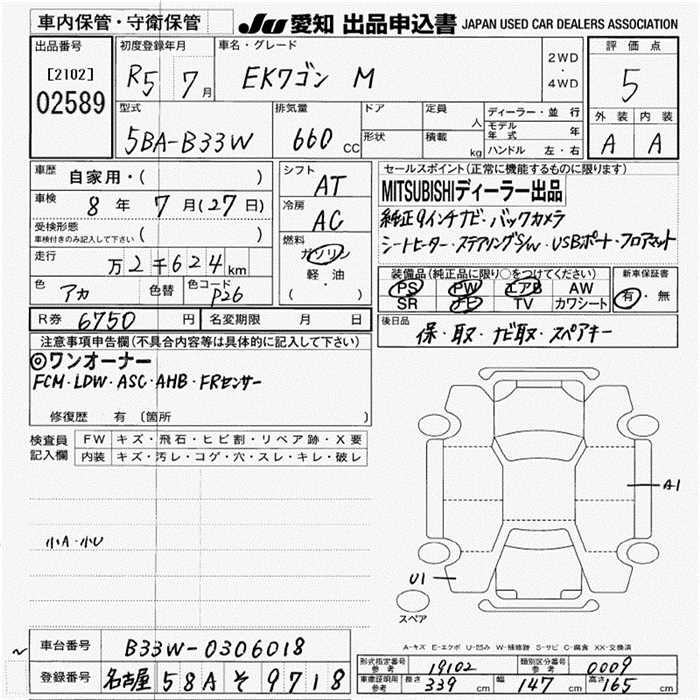 車内保管・守衛保管 JU 愛知 出品申込書 JAPAN USED CAR DEALERS ASSOCIATION
出品番号 初度登録年月 車名・グレード 評価点
[2102] R5 7月 EKワゴン M 2WD・4WD 5
02589
型式 排気量 ドア 定員 ディーラー・並行 外装 内装
5BA-B33W 660cc 形状 人 モデル年式 年 A A
積載 kg ハンドル 左・右
車歴 自家用・( ) シフト AT セールスポイント(正常に機能するものに限ります)
車検 8年 7月(27日) 冷房 AC MITSUBISHIディーラー出品
受検形態 車検付きのみ記入して下さい ( ) 燃料 ガソリン 純正9インチナビ・バックカメラ
軽油 シートヒーター・ステアリングS/W・USBポート・フロアマット
走行 万2千624km ( ・ ) 装備品(純正品に限り○をつけてください) 新車保証書
色 アカ 色替 色コード P26 PS PW エアB AW 有・無
SR ナビ TV カワシート
R券 6750円 名変期限 月 日 後日品 保・取・ナビ取・スペアキー
注意事項申告欄(不具合内容等は具体的に記入して下さい)
◎ワンオーナー
FCM・LDW・ASC・AHB・FRセンサー
修復歴 有 〔箇所 〕
検査員記入欄 FW キズ・飛石・ヒビ割・リペア跡・X要
内装 キズ・汚レ・コゲ・穴・スレ・キレ・破レ
A1
小A・小U
U1
スペア
A-キズ E-エクボ U-凹み W-補修跡 S-サビ C-腐食 XX-交換済
車台番号 B33W-0306018 形式指定番号 参考 19102 類別区分番号 参考 0009
登録番号 名古屋 58A そ 9718 車庫証明用 参考 長さ 339cm 幅 147cm 高さ 165cm